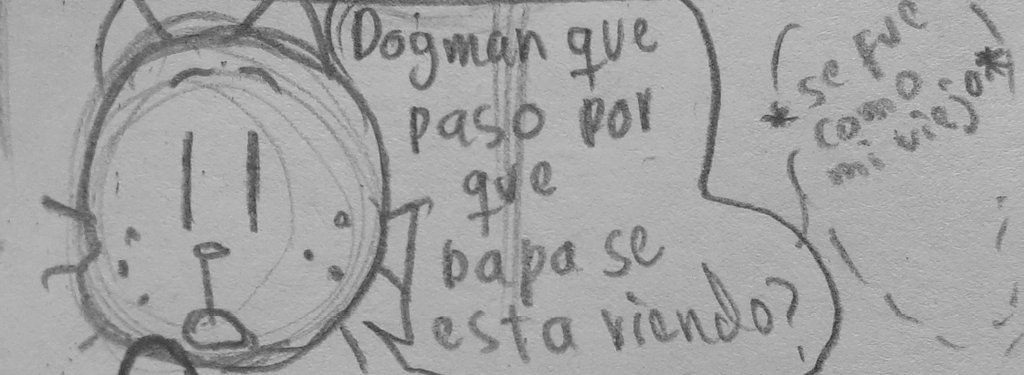 Dogman que
paso por
que
papa se
esta riendo?
*se fue
como
mi viejo*